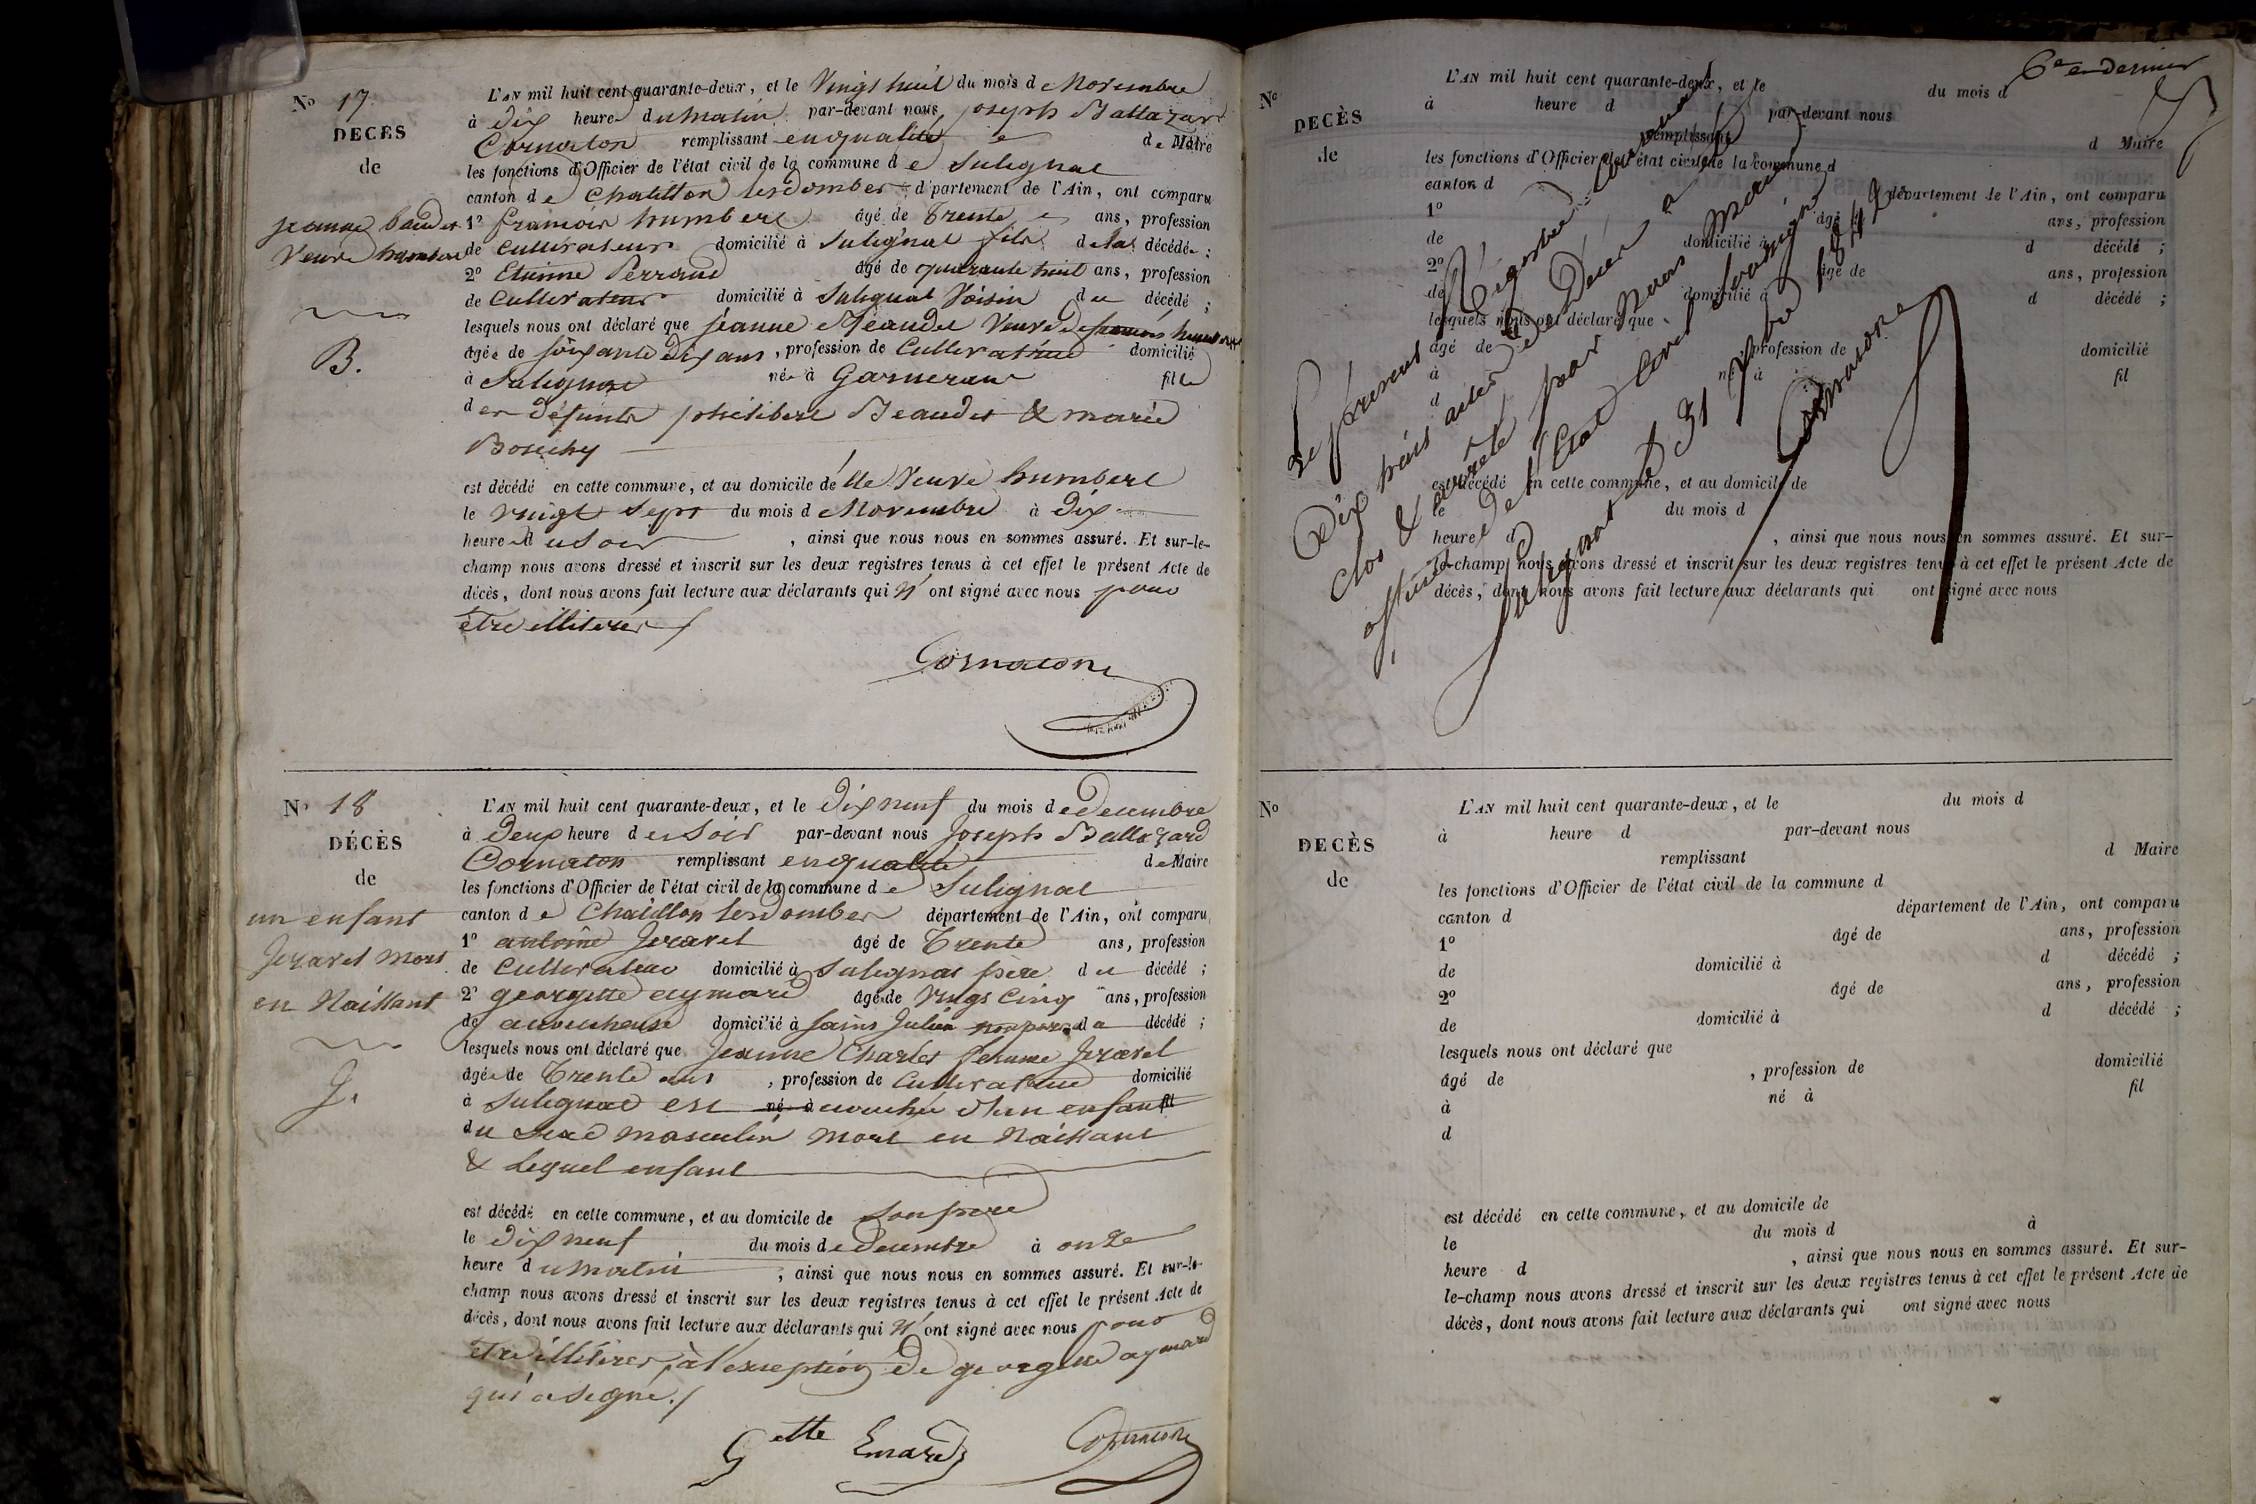 No 17
DÉCÈS
de
jeanne baudet
Veuve humbert
B.
L'AN mil huit cent quarante-deux, et le Vingt huit du mois de Novembre
à dix heure du matin par-devant nous joseph Baltazard
Cornaton remplissant en qualité de Maire
les fonctions d'Officier de l'état civil de la commune de Sulignat
canton de Chatillon les dombes département de l'Ain, ont comparu
1º francois humbert âgé de Trente ans, profession
de Cultivateur domicilié à Sulignat fils de la décédée ;
2º Etienne Perraud âgé de quarante huit ans, profession
de Cultivateur domicilié à Sulignat Voisin du décédé ;
lesquels nous ont déclaré que jeanne Beaudet Veuve de francois humbert
âgée de soixante dix ans, profession de Cultivatrice domicilié
à Sulignat née à Garnerans fille
des défunts philibert Beaudet & marie
Bouchy
est décédé en cette commune, et au domicile de lle Veuve humbert
le vingt sept du mois de Novembre à dix
heure du soir, ainsi que nous nous en sommes assuré. Et sur-le-
champ nous avons dressé et inscrit sur les deux registres tenus à cet effet le présent Acte de
décès, dont nous avons fait lecture aux déclarants qui n' ont signé avec nous pour
être illiterés /
Cornaton
No 18
DÉCÈS
de
un enfant
Jeravet mort
en Naissant
J.
L'AN mil huit cent quarante-deux, et le dix neuf du mois de decembre
à deux heure du soir par-devant nous Joseph Baltazard
Cornaton remplissant en qualité de Maire
les fonctions d'Officier de l'état civil de la commune de Sulignat
canton de Chatillon les dombes département de l'Ain, ont comparu
1º antoine Jeravet âgé de Trente ans, profession
de Cultivateur domicilié à Sulignat père du décédé ;
2º georgette aymard âgé de Vingt Cinq ans, profession
de accoucheuse domicilié à saint Julien non parend du décédé ;
lesquels nous ont déclaré que Jeanne Charles femme Jeravet
âgée de Trente ans, profession de Cultivatrice domicilié
à Sulignat est né à accouchée d'un enfant fil
du sexe masculin mort en Naissant
& Lequel enfant
est décédé en cette commune, et au domicile de son pere
le dix neuf du mois de decembre à onze
heure du matin, ainsi que nous nous en sommes assuré. Et sur-le-
champ nous avons dressé et inscrit sur les deux registres tenus à cet effet le présent Acte de
décès, dont nous avons fait lecture aux déclarants qui n' ont signé avec nous pour
être illitéres, à l'exception de georgette aymard
qui a signé. /
Gette Emard Cornaton
6e en dernier
No
DECÈS
de
L'AN mil huit cent quarante-deux, et le du mois d
à heure d par-devant nous
remplissant d Maire
les fonctions d'Officier de l'état civil de la commune d
canton d département de l'Ain, ont comparu
1º âgé de ans, profession
de domicilié à d décédé ;
2º âgé de ans, profession
de domicilié à d décédé ;
lesquels nous ont déclaré que
âgé de , profession de domicilié
à né à fil
d
est décédé en cette commune, et au domicile de
le du mois d
heure d , ainsi que nous nous en sommes assuré. Et sur-
le-champ nous avons dressé et inscrit sur les deux registres tenus à cet effet le présent Acte de
décès, dont nous avons fait lecture aux déclarants qui ont signé avec nous
Le présent Régistre Contenant
Dix huit actes de Décès a été
clos & arrêté par Nous Maire
officier de l'Etat Civil soussigné
Sulignat le 31 Xbre 1842
Cornaton
No
DECÈS
de
L'AN mil huit cent quarante-deux, et le du mois d
à heure d par-devant nous
remplissant d Maire
les fonctions d'Officier de l'état civil de la commune d
canton d département de l'Ain, ont comparu
1º âgé de ans, profession
de domicilié à d décédé ;
2º âgé de ans, profession
de domicilié à d décédé ;
lesquels nous ont déclaré que
âgé de , profession de domicilié
à né à fil
d
est décédé en cette commune, et au domicile de
le du mois d à
heure d , ainsi que nous nous en sommes assuré. Et sur-
le-champ nous avons dressé et inscrit sur les deux registres tenus à cet effet le présent Acte de
décès, dont nous avons fait lecture aux déclarants qui ont signé avec nous